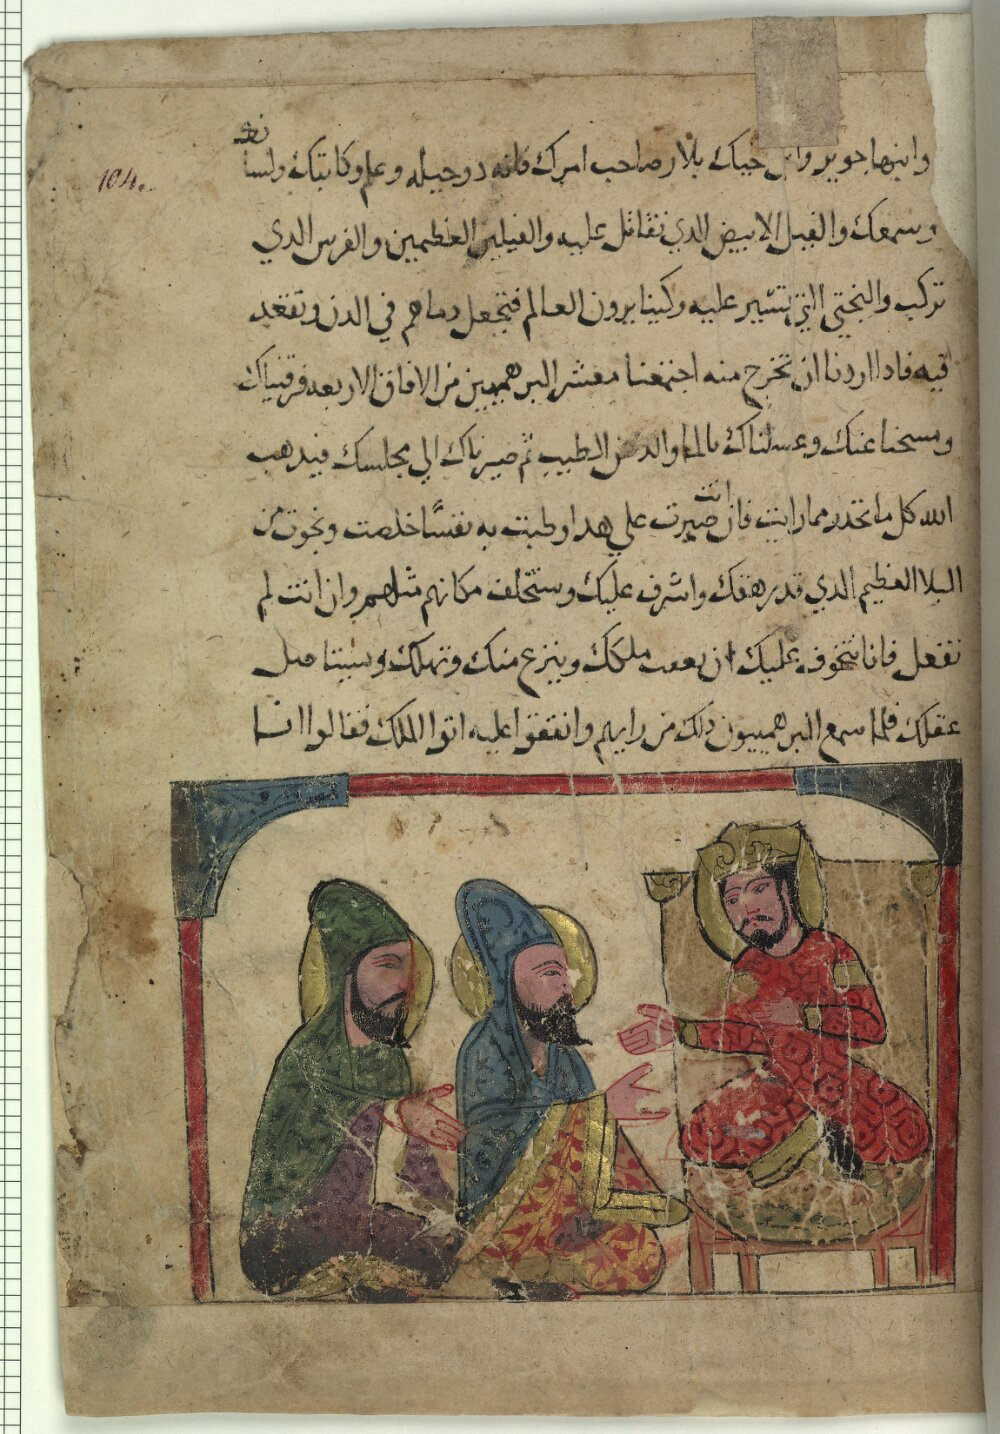 104.
وابنها جوير وابن خيك بلار صاحب امرك فانه ذو حيله وعلم وكاتبك ولسا
نك
وسمعك والفيل الابيض الذي تقاتل عليه والفيلين العظيمين والفرس الذي
تركب والبختي التي تسير عليه وكينايرون العالم فتجعل دماهم في الدن وتقعد
فيه فاذا اردنا ان تخرج منه اجتمعنا معشر البرهميين من الافاق الاربعه فرقيناك
ومسحنا عنك وغسلناك بالما والدهن الطيب ثم صيرناك الي مجلسك فيذهب
الله كل ما تحذر مما رايت فان انت صبرت علي هذا وطبت به نفسًا خلصت ونجوت من
البلا العظيم الذي قد رهقك واشرف عليك وستخلف مكانهم مثلهم وان انت لم
تفعل فانا نتخوف عليك ان يعصب ملكك وينزع منك وتهلك ويستاصل
عقلك فلما سمع البرهميون ذلك من رايهم واتفقوا عليه اتوا الملك فقالوا انا